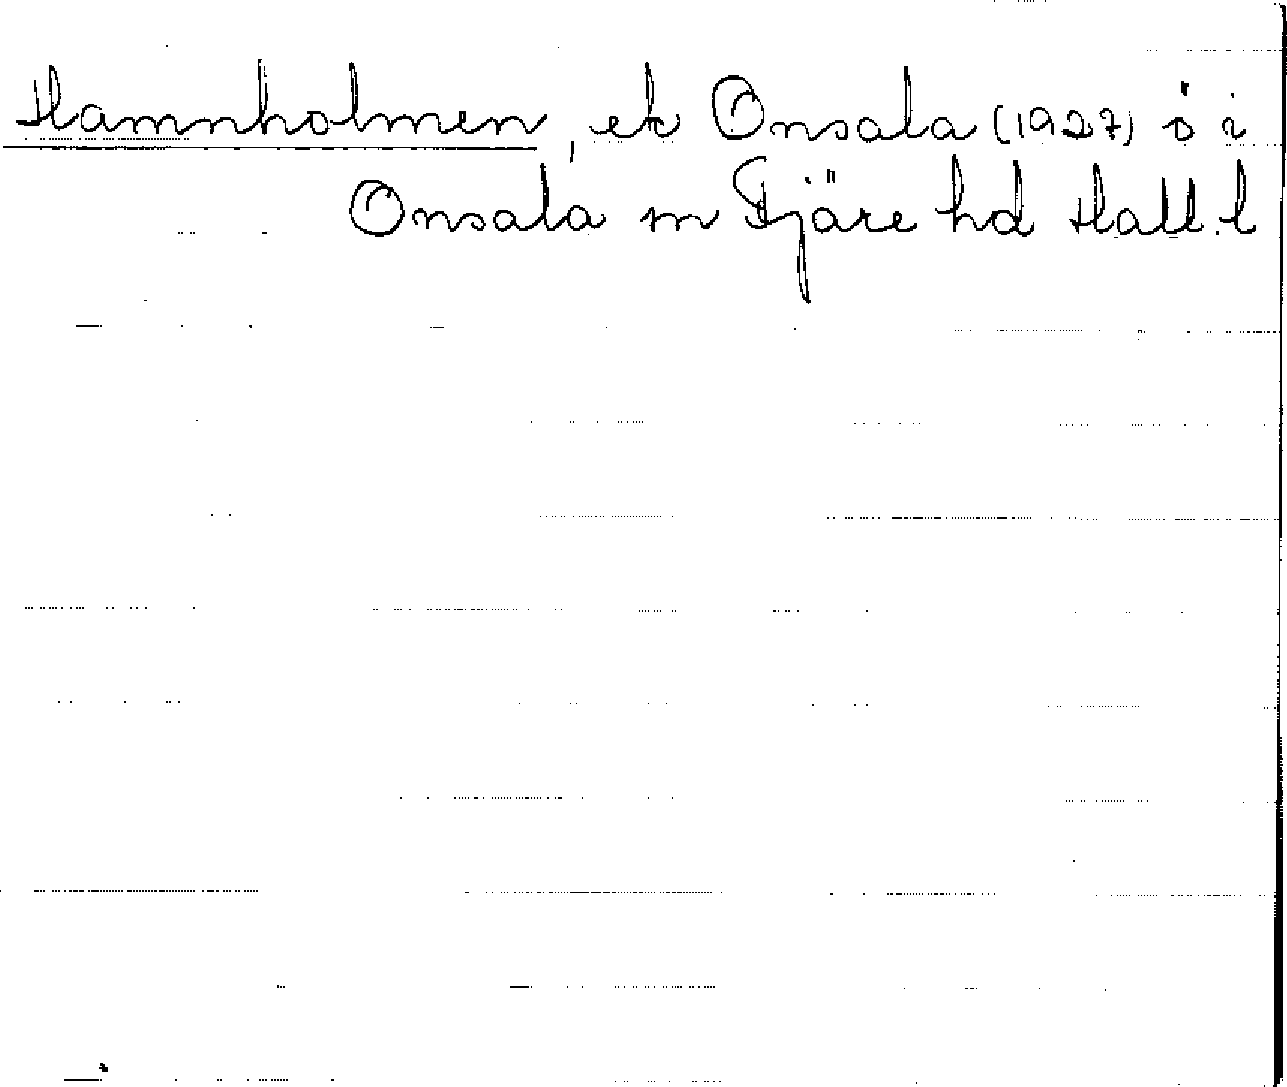 Hamnholmen, ek Onsala (1927) ö i
Onsala sn Fjäre hd Hall. l